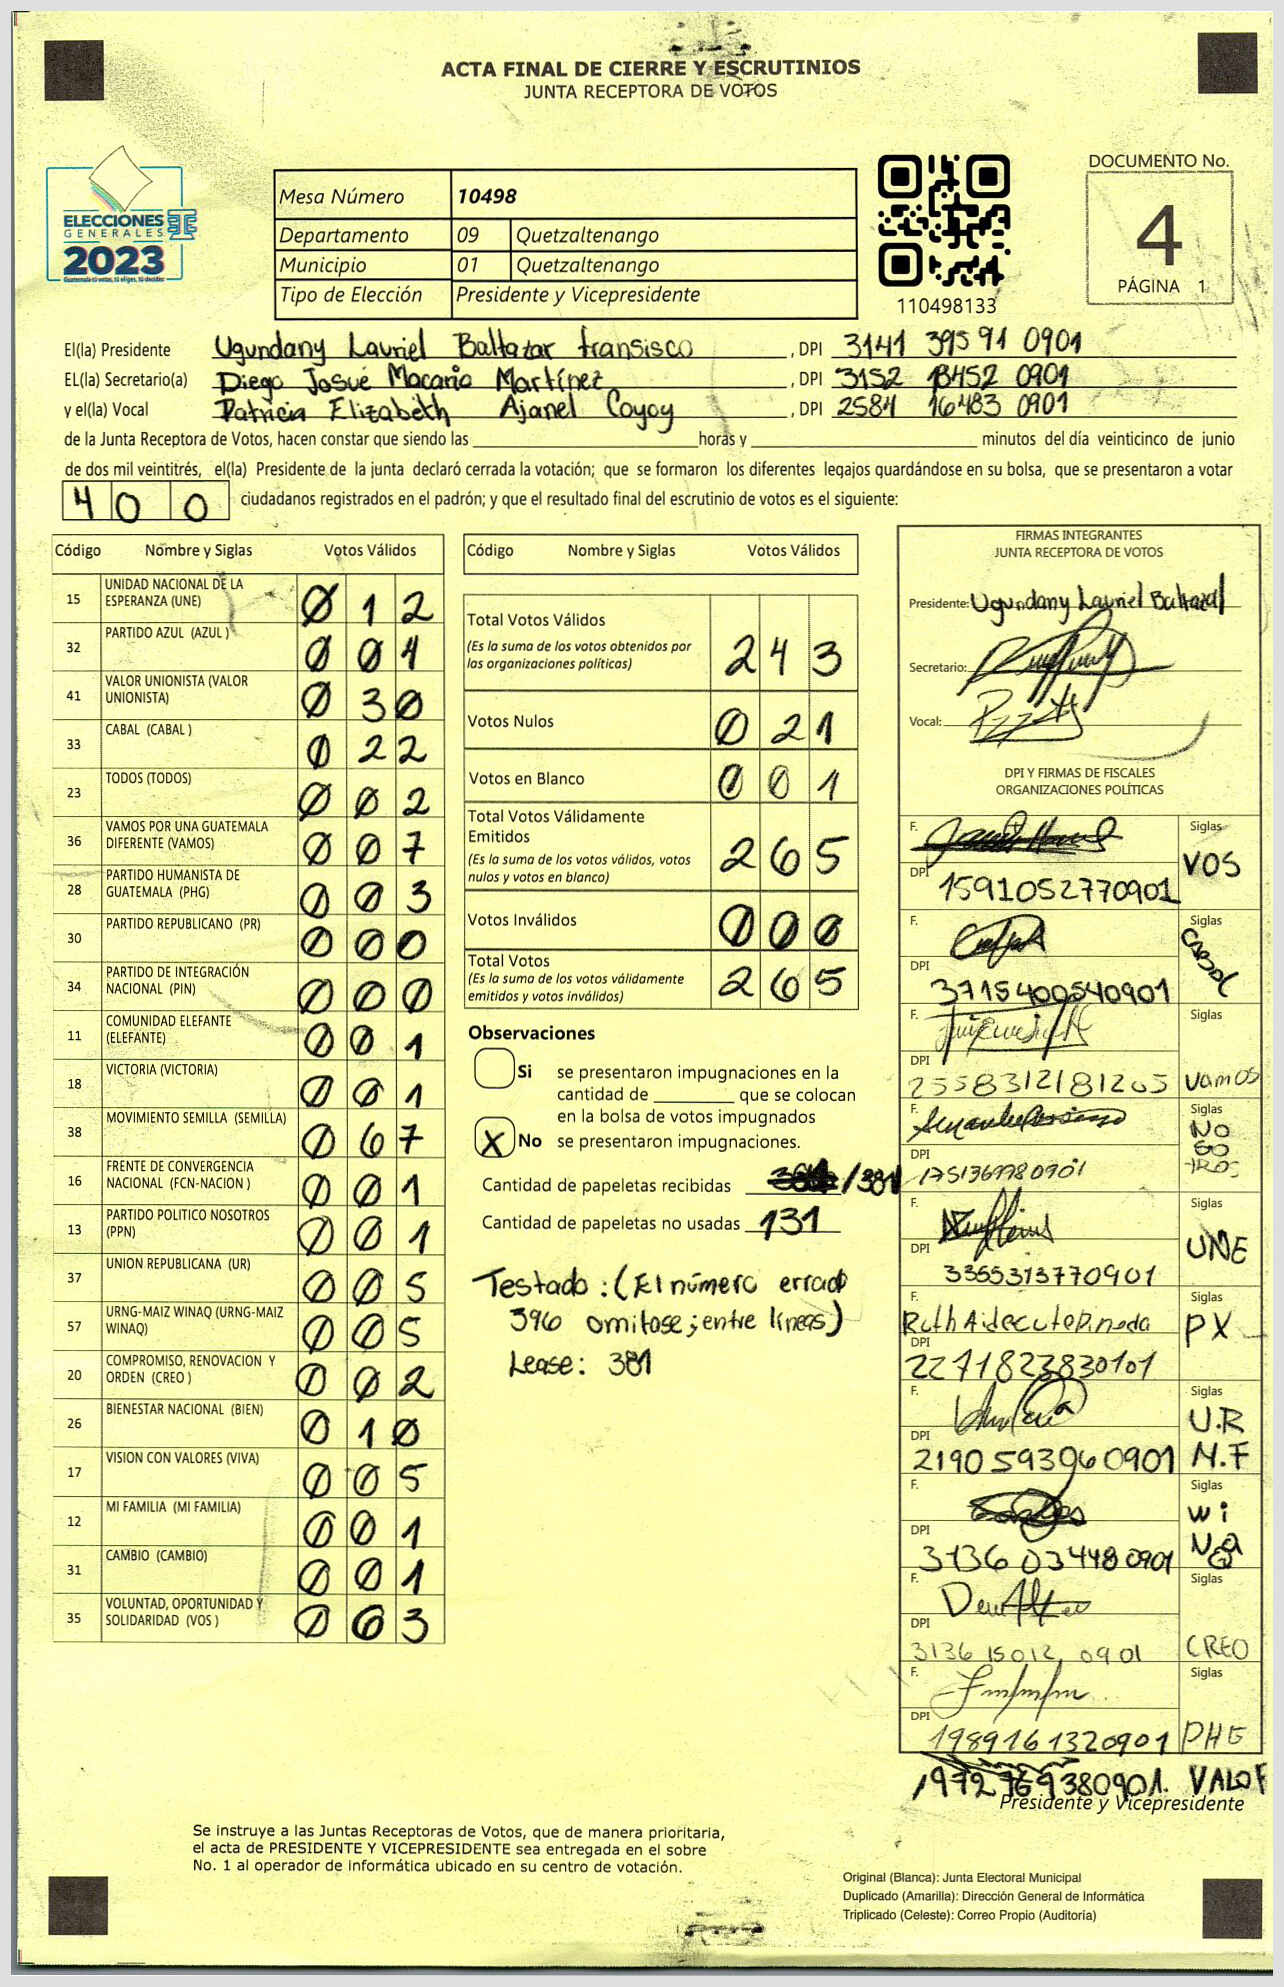 ACTA FINAL DE CIERRE Y ESCRUTINIOS
JUNTA RECEPTORA DE VOTOS
ELECCIONES
GENERALES
2023
Guatemala tú votas, tú eliges, tú decides
Mesa Número 10498
Departamento 09 Quetzaltenango
Municipio 01 Quetzaltenango
Tipo de Elección Presidente y Vicepresidente
110498133
DOCUMENTO No.
4
PÁGINA 1
El(la) Presidente Ugundany Lauriel Baltazar fransisco , DPI 3141 39591 0901
EL(la) Secretario(a) Diego Josué Macario Martínez , DPI 3152 13452 0901
y el(la) Vocal Patricia Elizabeth Ajanel Coyoy , DPI 2584 16483 0901
de la Junta Receptora de Votos, hacen constar que siendo las horas y minutos del día veinticinco de junio
de dos mil veintitrés, el(la) Presidente de la junta declaró cerrada la votación; que se formaron los diferentes legajos guardándose en su bolsa, que se presentaron a votar
400 ciudadanos registrados en el padrón; y que el resultado final del escrutinio de votos es el siguiente:
Código Nombre y Siglas Votos Válidos
15 UNIDAD NACIONAL DE LA ESPERANZA (UNE) 012
32 PARTIDO AZUL (AZUL ) 004
41 VALOR UNIONISTA (VALOR UNIONISTA) 030
33 CABAL (CABAL ) 022
23 TODOS (TODOS) 002
36 VAMOS POR UNA GUATEMALA DIFERENTE (VAMOS) 007
28 PARTIDO HUMANISTA DE GUATEMALA (PHG) 003
30 PARTIDO REPUBLICANO (PR) 000
34 PARTIDO DE INTEGRACIÓN NACIONAL (PIN) 000
11 COMUNIDAD ELEFANTE (ELEFANTE) 001
18 VICTORIA (VICTORIA) 001
38 MOVIMIENTO SEMILLA (SEMILLA) 067
16 FRENTE DE CONVERGENCIA NACIONAL (FCN-NACION ) 001
13 PARTIDO POLITICO NOSOTROS (PPN) 001
37 UNION REPUBLICANA (UR) 005
57 URNG-MAIZ WINAQ (URNG-MAIZ WINAQ) 005
20 COMPROMISO, RENOVACION Y ORDEN (CREO ) 002
26 BIENESTAR NACIONAL (BIEN) 010
17 VISION CON VALORES (VIVA) 005
12 MI FAMILIA (MI FAMILIA) 001
31 CAMBIO (CAMBIO) 001
35 VOLUNTAD, OPORTUNIDAD Y SOLIDARIDAD (VOS ) 063
Código Nombre y Siglas Votos Válidos
Total Votos Válidos 243
(Es la suma de los votos obtenidos por
las organizaciones políticas)
Votos Nulos 021
Votos en Blanco 001
Total Votos Válidamente
Emitidos 265
(Es la suma de los votos válidos, votos
nulos y votos en blanco)
Votos Inválidos 000
Total Votos 265
(Es la suma de los votos válidamente
emitidos y votos inválidos)
Observaciones
Si se presentaron impugnaciones en la
cantidad de que se colocan
en la bolsa de votos impugnados
X No se presentaron impugnaciones.
Cantidad de papeletas recibidas /381
Cantidad de papeletas no usadas 131
Testado : (El número errado
396 omitase; entre líneas)
Lease: 381
FIRMAS INTEGRANTES
JUNTA RECEPTORA DE VOTOS
Presidente: Ugundany Lauriel Baltazar
Secretario:
Vocal:
DPI Y FIRMAS DE FISCALES
ORGANIZACIONES POLÍTICAS
F. Siglas
DPI 1591052770901 VOS
F. Siglas
DPI 3715400540901 CABAL
F. Siglas
DPI 2558312181205 Vamos
F. Siglas
DPI 1751369980901 NOSOTROS
F. Siglas
DPI 3355313770901 UNE
F. Ruth Aidecute Pineda Siglas
DPI 2271823830101 PX
F. Siglas
DPI 2190593960901 U.R M.F
F. Siglas
DPI 3136034480901 WiNaQ
F. Siglas
DPI 3136 15012 0901 CREO
F. Siglas
DPI 1989161320901 PHG
1972769380901. VALOR
Presidente y Vicepresidente
Se instruye a las Juntas Receptoras de Votos, que de manera prioritaria,
el acta de PRESIDENTE Y VICEPRESIDENTE sea entregada en el sobre
No. 1 al operador de informática ubicado en su centro de votación.
Original (Blanca): Junta Electoral Municipal
Duplicado (Amarilla): Dirección General de Informática
Triplicado (Celeste): Correo Propio (Auditoría)